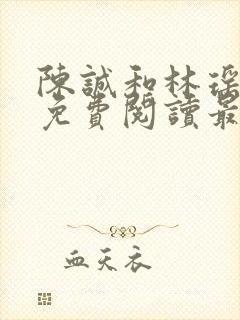 陳誠和林瑤
免費閱讀最
血天衣